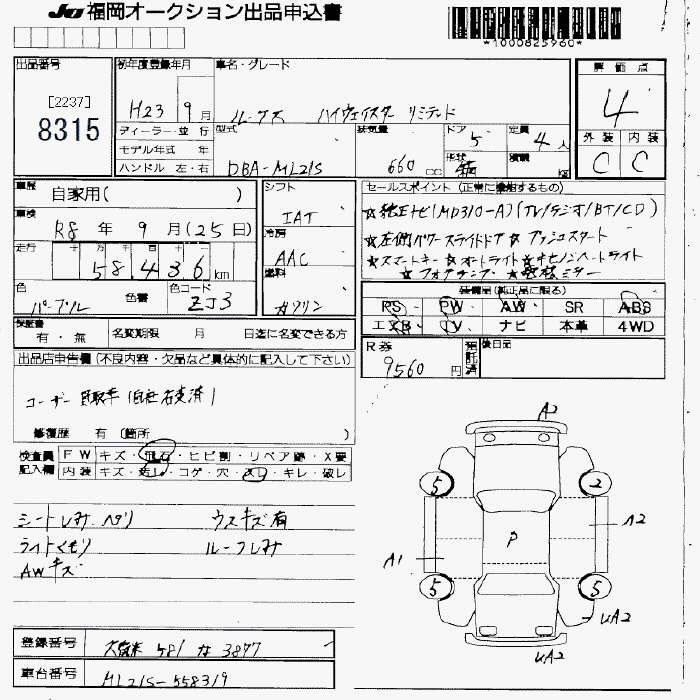 JU 福岡オークション出品申込書
*1000825960*
出品番号 初年度登録年月 車名・グレード 評価点
[2237]
8315
H23 9月 ルークス ハイウェイスター リミテッド 4
ディーラー・並行 型式 排気量 ドア 定員 外装 内装
モデル年式 年 5 4人
ハンドル 左・右 DBA-ML21S 660cc 形状 積載 kg C C
車歴 自家用( ) シフト セールスポイント(正常に機能するもの)
IAT ☆純正ナビ(MD310-A)(TV/ラジオ/BT/CD)
車検 R8年 9月(25日) 冷房 ☆左側パワースライドドア ☆プッシュスタート
走行 十 万 千 百 十 AAC ☆スマートキー ☆オートライト ☆キセノンヘートライト
58,436km 燃料 ☆フォグランプ
色 パープル 色番 色コード ZJ3 ガソリン
装備品(純正品に限る)
PS PW AW SR ABS
エアB TV ナビ 本革 4WD
保証書 有・無 名変期限 月 日迄に名変できる方
R券 9560円 預託済 後日品
出品店申告欄(不良内容・欠品など具体的に記入して下さい)
ユーザー買取車(自社名変済)
修復歴 有(箇所 )
検査員記入欄 FW キズ・飛石・ヒビ割・リペア跡・X要
内装 キズ・汚レ・コゲ・穴・スレ・キレ・破レ
シートしみ、ヘタリ ウスキズ有
ライトくもり ルーフしみ
AWキズ
A2
5 2
A2
P
A1
5 5
UA2
UA2
登録番号 久留米 581 な 3877
車台番号 ML21S-558319